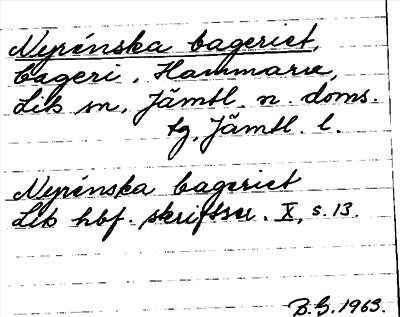 Nyrénska bageriet,
bageri, Hammarn,
Lits sn, Jämtl. n. doms.
tg, Jämtl. l.
Nyrénska bageriet
Lits hbf. skriftser. X, s. 13.
B.G. 1963.